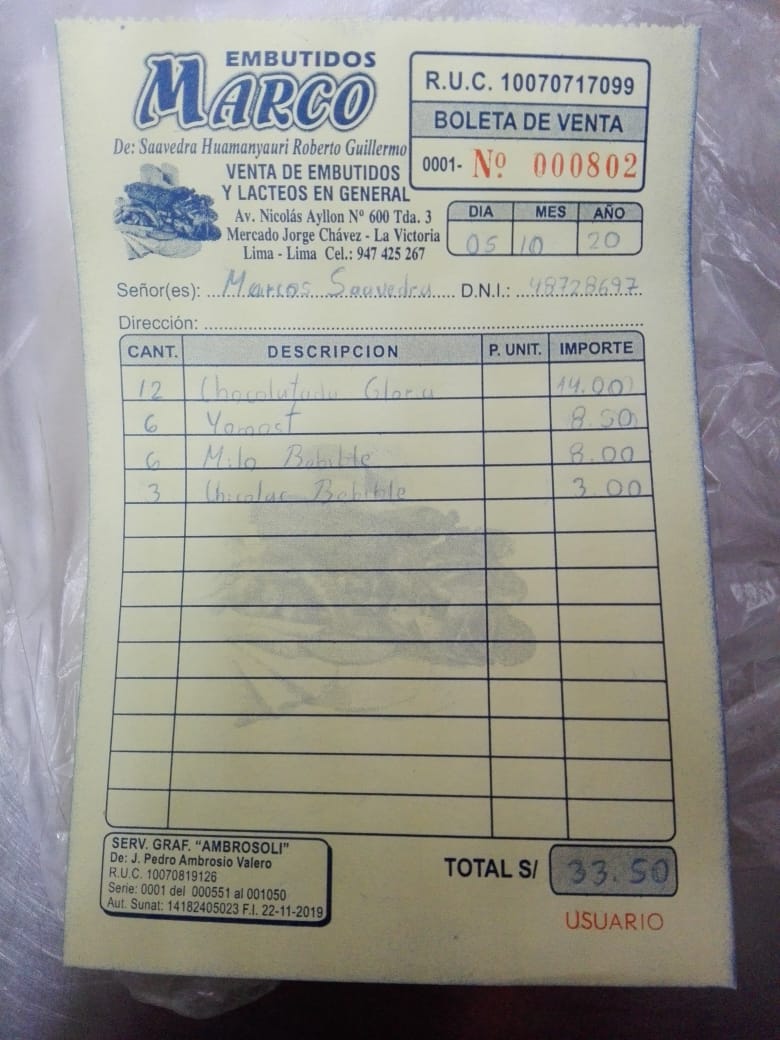 EMBUTIDOS
MARCO
De: Saavedra Huamanyauri Roberto Guillermo
VENTA DE EMBUTIDOS
Y LACTEOS EN GENERAL
Av. Nicolás Ayllon Nº 600 Tda. 3
Mercado Jorge Chávez - La Victoria
Lima - Lima Cel.: 947 425 267
R.U.C. 10070717099
BOLETA DE VENTA
0001- Nº 000802
DIA MES AÑO
05 10 20
Señor(es): Marcos Saavedra D.N.I.: 48728697
Dirección:
CANT. DESCRIPCION P. UNIT. IMPORTE
12 Chocolatada Gloria 14.00
6 Yomost 8.50
6 Milo Bebible 8.00
3 Chicolac Bebible 3.00
SERV. GRAF. "AMBROSOLI"
De: J. Pedro Ambrosio Valero
R.U.C. 10070819126
Serie: 0001 del 000551 al 001050
Aut. Sunat: 14182405023 F.I. 22-11-2019
TOTAL S/ 33.50
USUARIO